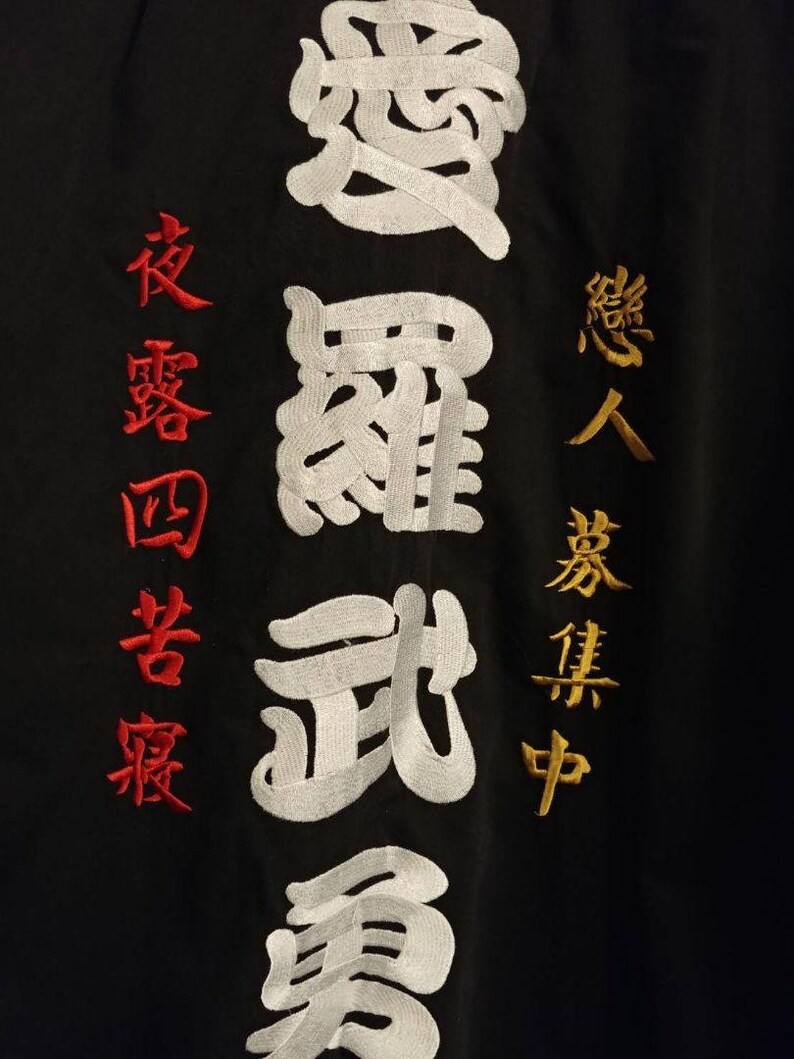 戀人 募集中
愛羅武勇
夜露四苦寝